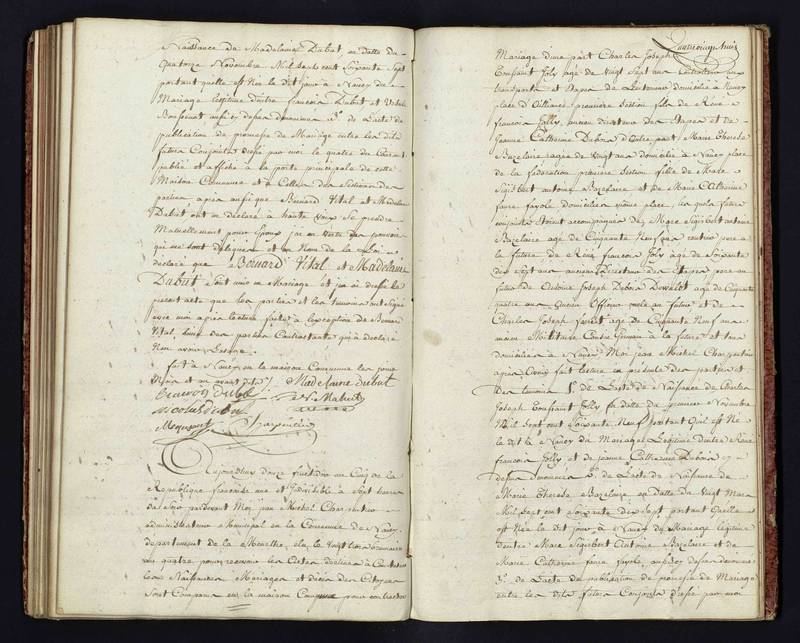 Naissance de Madelaine Dubut en datte du
quatorze Novembre Mil Sept cent Soixante Sept
portant quelle est Née le dit jour à Nancy du
Mariage Légitime d'entre françois Dubut et
aussi cy dessus Dénommés 3° de L'acte de
publication de promesse de Mariage entre les dits
futurs Conjoints dressé par moi le quatre du Courant
publié et affiché à la porte principale de cette
Maison Commune et à Celle des Sections des
parties, après aussi que Bernard Vital et Madelaine
Dubut ont déclaré à haute Voix se prendre
Mutuellement pour Epoux j'ai en Vertu des pouvoirs
qui me sont délégués et au Nom de la Loi
déclaré que Bernard Vital et Madelaine
Dubut sont unis en Mariage et j'ai dressé le
présent acte que les parties et les témoins ont Signé
avec moi après lecture faite à l'exception de Bernard
Vital, l'une des parties Contractante qui a déclaré
Non avoir l'usage.
fait à Nancy en la maison Commune les jour
Mois et an avant dits. Madelaine dubut
nicolas dubut
Charpentier
Aujourdhui douze fructidor an Cinq de la
République française une et Indivisible à Sept heures
du Soir pardevant Moi Jean Michel Charpentier
administrateur Municipal en la Commune de Nancy
département de la Meurthe, élu le Vingt
an quatre, pour recevoir les Actes destinés à Constater
les Naissances Mariages et décès des Citoyens
Sont Comparus en la maison Commune pour contracter
Mariage d'une part Charles Joseph
Toussaint Joly agé de Vingt Sept ans
transports et Etapes de domicilié à Nancy
place d'Alliance première Section fils de René
françois Jolly, ancien directeur des Etapes et de
Jeanne Catherine Dubois D'autre part Marie Therese
Bazelaire agée de Vingt ans domicilié à Nancy place
de la fédération première Section fille de Marc
Sigisbert antoine Bazelaire et de Marie Catherine
faure fayole domiciliés même place, les quels futurs
conjoints étoient accompagnés de Marc Sigisbert antoine
Bazelaire agé de Cinquante Neuf ans rentier père à
la future de René françois Joly agé de Soixante
dix Sept ans ancien Directeur des Etapes père au
futur de Antoine Joseph Dubois agé de Cinquante
quatre ans Ancien Officier oncle au futur et de
Charles Joseph agé de Cinquante Neuf ans
ancien Militaire Cousin Germain à la future et tous
domiciliés à Nancy. Moi Jean Michel Charpentier
après avoir fait lecture en présence des parties et
Des temoins 1° de L'acte de Naissance de Charles
Joseph Toussaint Jolly en datte du premier Novembre
Mil Sept cent Soixante Neuf portant Qu'il est Né
le dit à Nancy du Mariage Légitime d'entre René
françois Jolly et de Jeanne Catherine Dubois cy
dessus Dénommés 2° de L'acte de Naissance de
Marie Therese Bazelaire en datte du Vingt Mars
Mil Sept cent Soixante dix Sept portant Quelle
est Née le dit jour à Nancy du Mariage légitime
d'entre Marc Sigisbert Antoine Bazelaire et de
Marie Catherine faure fayole, aussi cy dessus dénommés
3° de L'acte de publication de promesse de Mariage
entre les dits futurs Conjoints dressé par moi